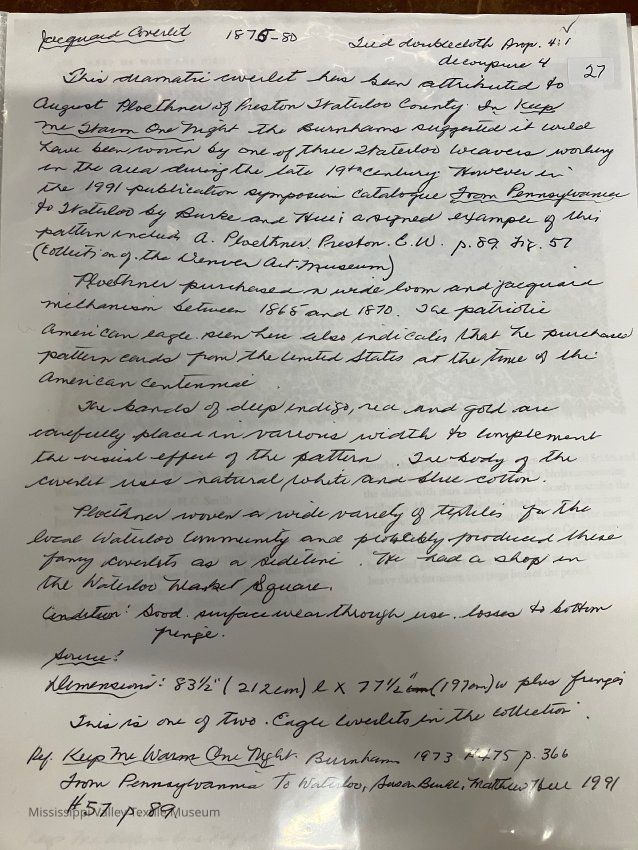 Jacquard Coverlet 1875-80 Tied doublecloth Prop. 4:1
decoupure 4
27
This dramatic coverlet has been attributed to
August Ploethner of Preston Waterloo County. In Keep
Me Warm One Night the Burnhams suggested it could
have been woven by one of three Waterloo weavers working
in the area during the late 19th century. However in
the 1991 publication symposium catalogue From Pennsylvania
to Waterloo by Burke and Hill; a signed example of this
pattern includes A. Ploethner. Preston. C. W. p. 89 Fig. 57
(Collection of the Denver Art Museum)
Ploethner purchased a wide loom and jacquard
mechanism between 1865 and 1870. The patriotic
American eagle seen here also indicates that he purchased
pattern cards from the United States at the time of the
American Centennial.
The bands of deep indigo, red and gold are
carefully placed in various width to complement
the visual effect of the pattern. The body of the
coverlet uses natural white and blue cotton.
Ploethner woven a wide variety of textiles for the
local Waterloo community and probably produced these
fancy coverlets as a sideline. He had a shop in
the Waterloo Market Square.
Condition: Good. surface wear through use. losses to bottom
fringe.
Source?
Dimensions: 83½" (212cm) l x 77½" (197cm) w plus fringes
This is one of two Eagle coverlets in the collection.
Ref. Keep Me Warm One Night. Burnham 1973 #475 p. 366
From Pennsylvannia To Waterloo, Susan Burke, Matthew Hill 1991
#57 p. 89
Mississippi Valley Textile Museum